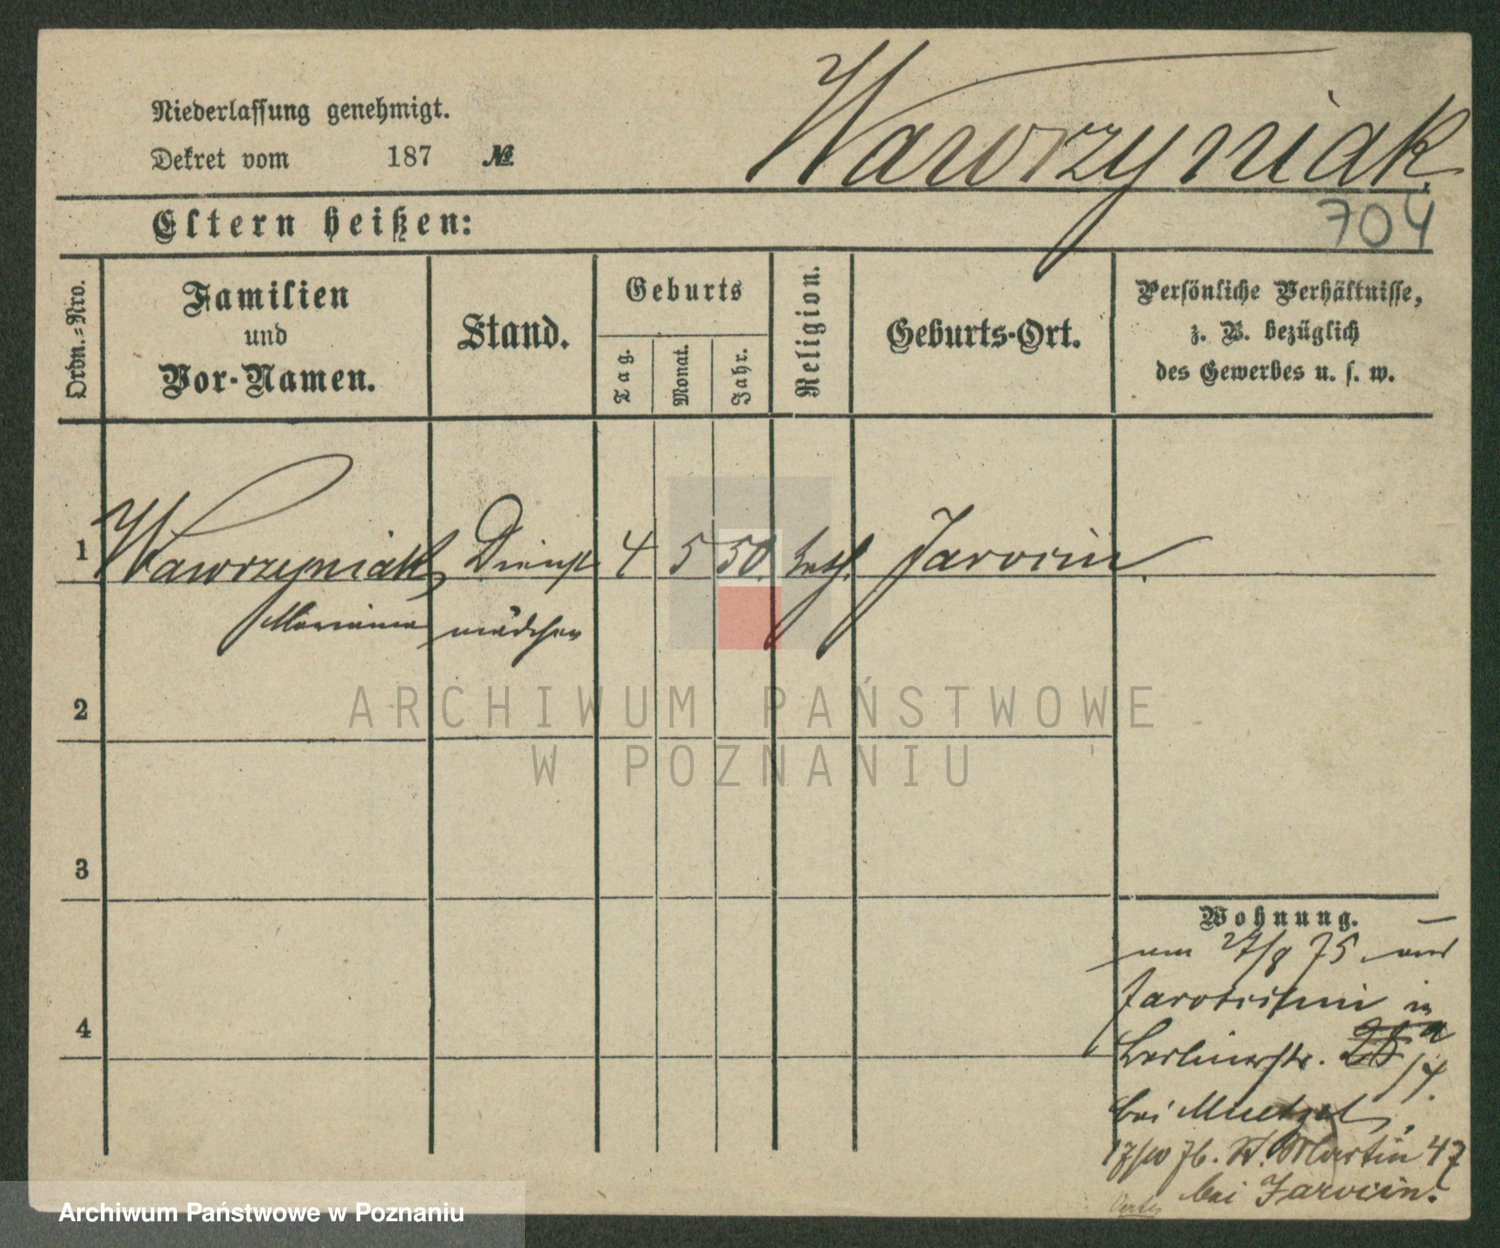 Niederlassung genehmigt.
Dekret vom 187 №
Wawrzyniak
704
Eltern heißen:
Ordn.=Nro.
Familien
und
Vor-Namen.
Stand.
Geburts
Tag.
Monat.
Jahr.
Religion.
Geburts-Ort.
Persönliche Verhältnisse,
z. B. bezüglich
des Gewerbes u. s. w.
1 Wawrzyniak, Dienst 4 5 50. kath. Jarocin
Marianna mädchen
2
3
4
Wohnung.
27/9 75.
in
Berlinerstr.
bei
17/10 76. St. Martin 47
bei Jarocin.
ARCHIWUM PAŃSTWOWE
W POZNANIU
Archiwum Państwowe w Poznaniu